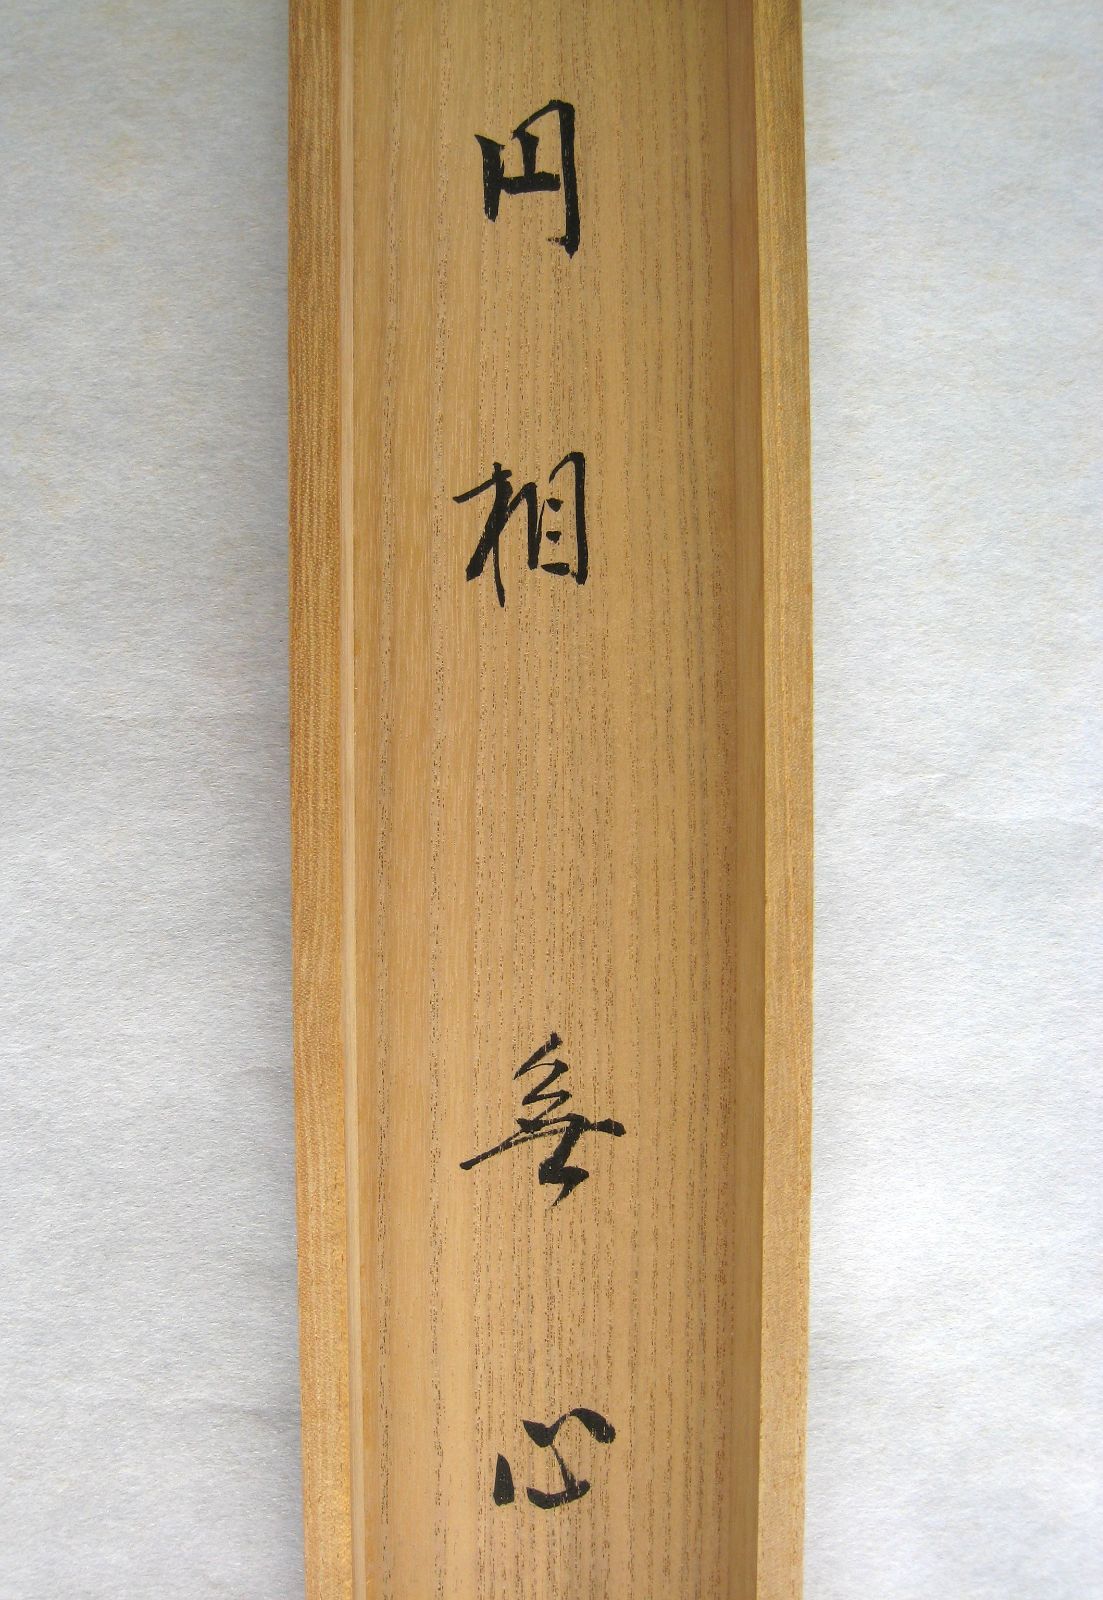 円相 無心